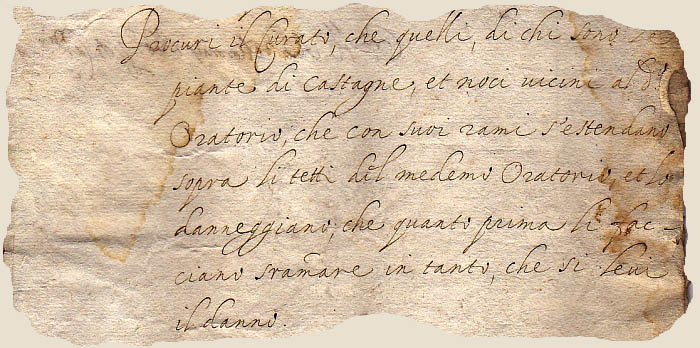 Procuri il Curato, che quelli, di chi sono
piante di Castagne, et noci vicini al d.
Oratorio, che con suoi rami s'estendano
sopra li tetti del medemo Oratorio, et lo
danneggiano, che quanto prima li fac-
ciano sramare in tanto, che si levi
il danno.